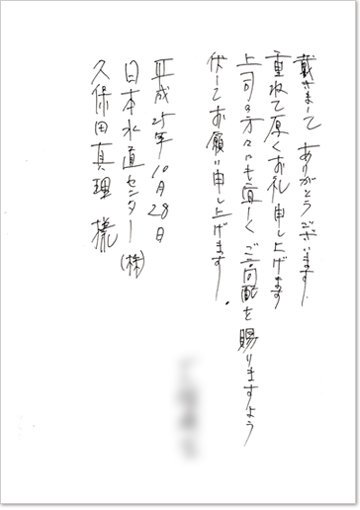 戴きましてありがとうございます
重ねて厚くお礼申し上げます
上司の方々にも宜しくご高配を賜りますよう
伏してお願い申し上げます。
平成25年10月28日
日本水道センター(株)
久保田真理様